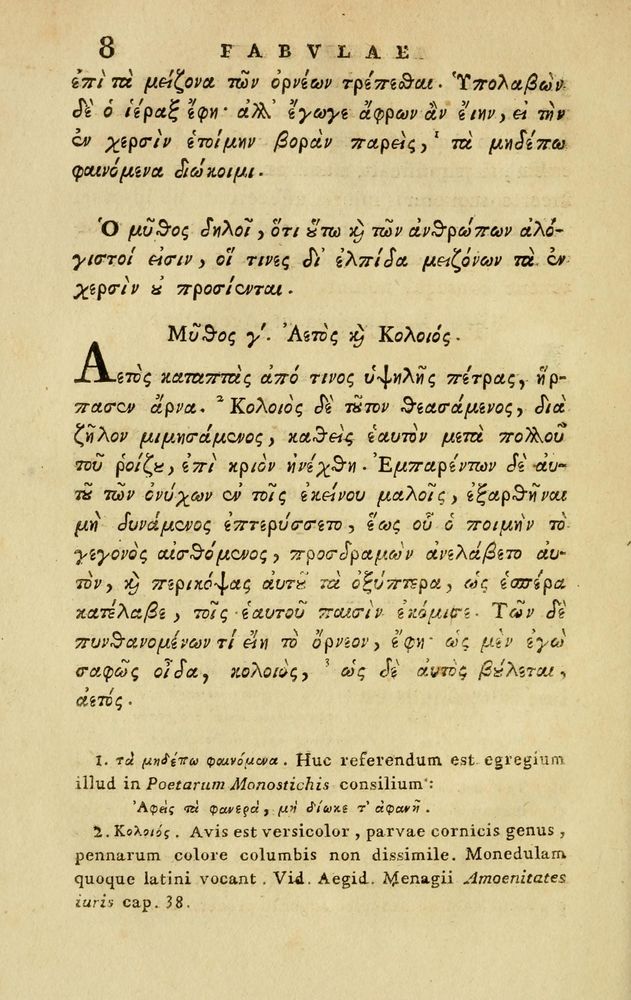 8 FABVLAE
ἐπὶ τὰ μείζονα τῶν ὀρνέων τρέπεσθαι. Ὑπολαβὼν
δὲ ὁ ἱέραξ ἔφη· ἀλλ' ἔγωγε ἄφρων ἂν ἔιην, εἰ τὴν
ἐν χερσὶν ἑτοίμην βορὰν παρεὶς, ¹ τὰ μηδέπω
φαινόμενα διώκοιμι.
Ὁ μῦθος δηλοῖ, ὅτι ȣ̔́τω κỳ τῶν ἀνθρώπων ἀλό-
γιστοί εἰσιν, οἵ τινες δι' ἐλπίδα μειζόνων τὰ ἐν
χερσὶν ȣ̓ προσίενται.
Μῦθος γ'. Ἀετὸς κỳ Κολοιός.
Ἀετὸς καταπτὰς ἀπό τινος ὑψηλῆς πέτρας, ἥρ-
πασεν ἄρνα. ² Κολοιὸς δὲ τȣ͂τον θεασάμενος, διὰ
ζῆλον μιμησάμενος, καθεὶς ἑαυτὸν μετὰ πολλοῦ
τοῦ ῥοίζȣ, ἐπὶ κριὸν ἠνέχθη. Ἐμπαρέντων δὲ ἀυ-
τȣ͂ τῶν ὀνύχων ἐν τοῖς ἐκείνου μαλοῖς, ἐξαρθῆναι
μὴ δυνάμενος ἐπτερύσσετο, ἕως οὗ ὁ ποιμὴν τὸ
γεγονὸς αἰσθόμενος, προσδραμὼν ἀνελάβετο ἀυ-
τὸν, κỳ περικόψας ἀυτȣ͂ τὰ ὀξύπτερα, ὡς ἑσπέρα
κατέλαβε, τοῖς ἑαυτοῦ παισὶν ἐκόμισε. Τῶν δὲ
πυνθανομένων τί ἔιη τὸ ὄρνεον, ἔφη· ὡς μὲν ἐγὼ
σαφῶς οἶδα, κολοιὸς, ³ ὡς δὲ ἀυτὸς βȣ́λεται,
ἀετός.
1. τὰ μηδέπω φαινόμενα. Huc referendum est egregium
illud in Poetarum Monostichis consilium:
Ἀφεὶς τὰ φανερὰ, μὴ δίωκε τ' ἀφανῆ.
2. Κολοιός. Avis est versicolor, parvae cornicis genus,
pennarum colore columbis non dissimile. Monedulam
quoque latini vocant. Vid. Aegid. Menagii Amoenitates
iuris cap. 38.